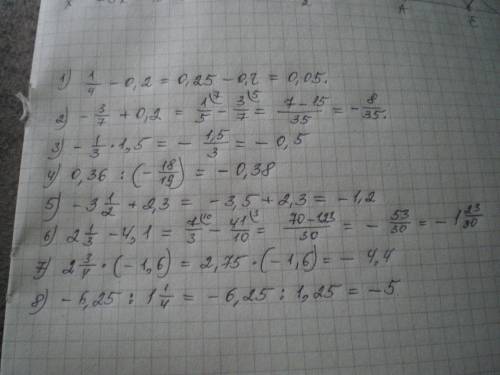 2
A
E
1) 1/4 - 0,2 = 0,25 - 0,2 = 0,05.
2) - 3/7 + 0,2 = 1/5 (7 - 3/7 (5 = (7 - 15)/35 = - 8/35.
3) - 1/3 · 1,5 = - 1,5/3 = - 0,5
4) 0,36 : (- 18/19) = - 0,38
5) - 3 1/2 + 2,3 = - 3,5 + 2,3 = - 1,2
6) 2 1/3 - 4,1 = 7/3 (10 - 41/10 (3 = (70 - 123)/30 = - 53/30 = - 1 23/30
7) 2 3/4 · (- 1,6) = 2,75 · (- 1,6) = - 4,4
8) - 6,25 : 1 1/4 = - 6,25 : 1,25 = - 5